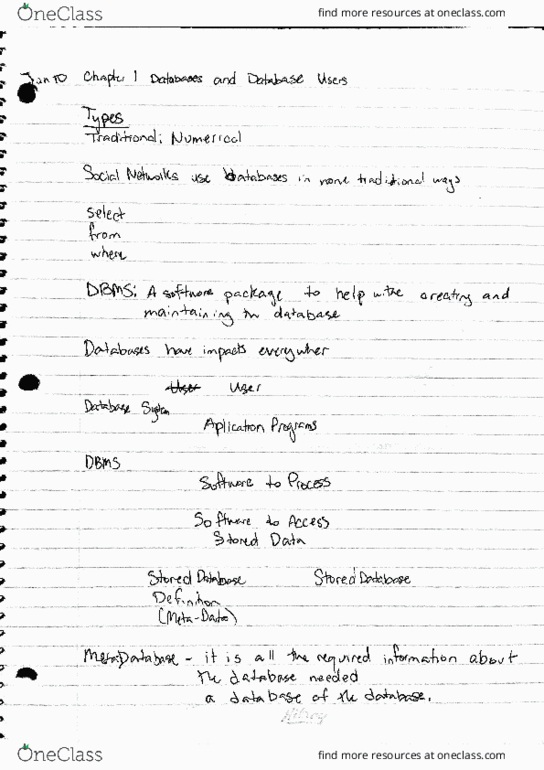 OneClass find more resources at oneclass.com
Jan 10 Chapter 1 Databases and Database Users
Types
Traditional: Numerical
Social Networks use databases in none traditional ways
select
from
where
DBMS: A software package to help with creating and
maintaining the database
Databases have impacts everywher
User User
Database System
Aplication Programs
DBMS
Software to Process
Software to Access
Stored Data
Stored Database Stored Database
Definition
(Meta-Data)
MetaDatabase - it is all the required information about
the database needed
a database of the database.
OneClass find more resources at oneclass.com